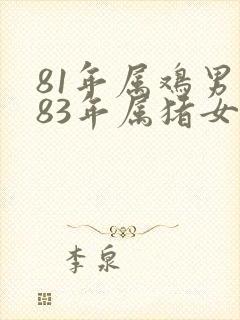 81年属鸡男
83年属猪女
李泉